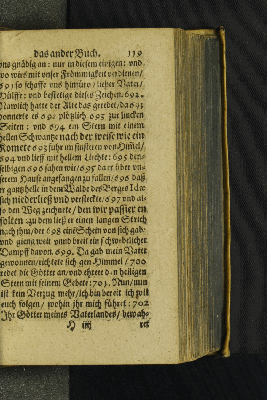 das ander Buch. 119
uns gnädig an: nur in diesem einigen: vnd
wo wirs mit unser Frömmigkeit verdienen/
691 so schaffe uns hinfüro/ lieber Vater/
Hülffe: vnd bestetige dieses Zeichen. 692.
Nawlich hatte der Alte das geredet/ da 693
donnerte es 692 plötzlich 693 zur lincken
Seiten: vnd 694 ein Stern mit einem
hellen Schwantze nach der weise wie ein
Komete 693 fuhr im finstern von Himel/
694 vnd lieff mit hellem Liechte: 695 den-
selbigen 696 sahen wir/ 695 da er über un-
serem Hause angefangen zu fallen/ 696 daß
er gantz helle in dem Walde des Berges Idæ
sich niederließ vnd versteckte/ 697 vnd al-
so den Weg zeichnete/ den wir passer en
solten: zu dem ließ er einen langen Strich
nach ihm/ der 698 eine Schein von sich gab:
vnd gieng weit vnnd breit ein schwebelicher
Dampff davon. 699. Da gab mein Vater
gewonnen/ richtete sich gen Himmel/ 700
redet die Götter an/ vnd ehrete den heiligen
Stern mit seinem Gebete: 701. Nun/ nun
ist kein Verzug mehr/ ich bin bereit ich wil
euch folgen/ wohin ihr mich führet: 702
Ihr Götter meines Vaterlandes/ bewah-
H iiij ret